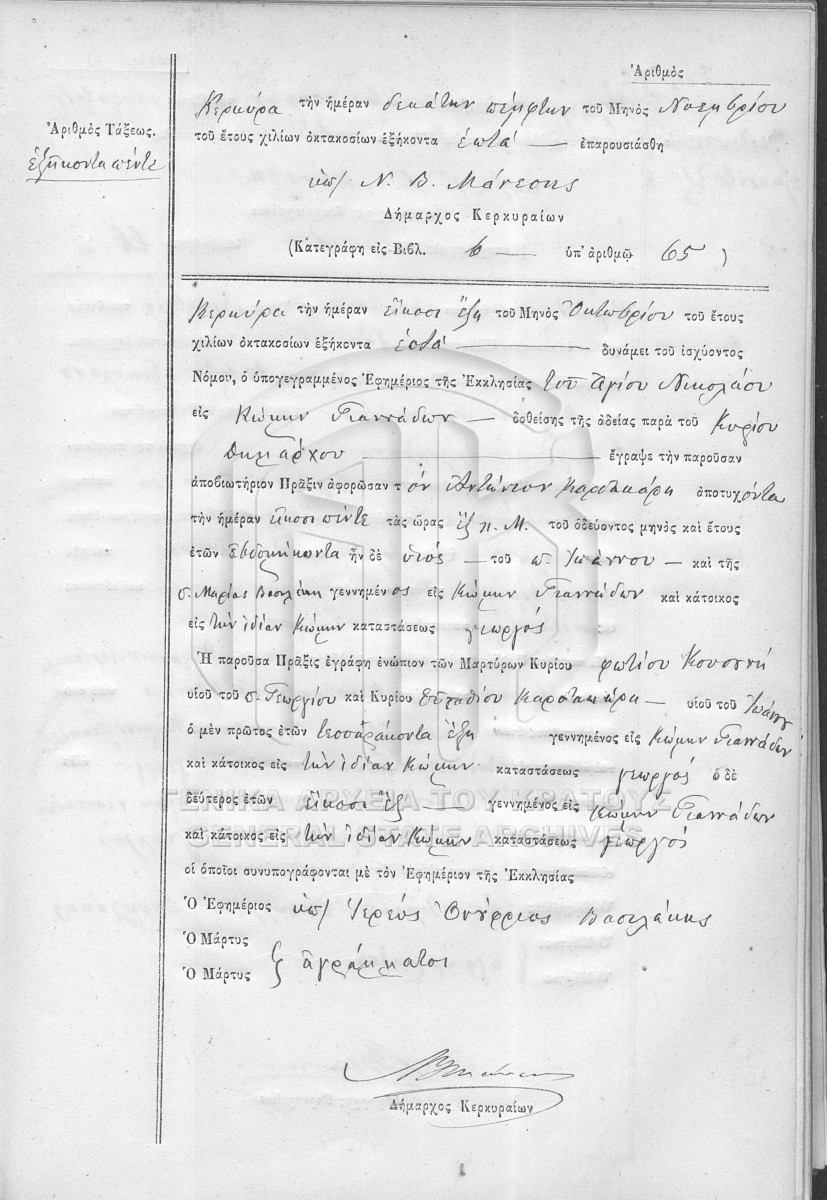 Ἀριθμὸς
Κερκύρα τὴν ἡμέραν δεκάτην πέμπτην τοῦ Μηνὸς Νοεμβρίου
Ἀριθμὸς Τάξεως.
τοῦ ἔτους χιλίων ὀκτακοσίων ἑξήκοντα ἑπτά ἐπαρουσιάσθη
ἑξήκοντα πέντε
ὑπ/ Ν. Β. Μάνεσης
Δήμαρχος Κερκυραίων
(Κατεγράφη εἰς Βιβλ. 6 ὑπ' ἀριθμῷ 65)
Κερκύρα τὴν ἡμέραν εἴκοσι ἕξη τοῦ Μηνὸς Ὀκτωβρίου τοῦ ἔτους
χιλίων ὀκτακοσίων ἑξήκοντα ἑπτά δυνάμει τοῦ ἰσχύοντος
Νόμου, ὁ ὑπογεγραμμένος Ἐφημέριος τῆς Ἐκκλησίας τοῦ Ἁγίου Νικολάου
εἰς Κώμην Γιαννάδων δοθείσης τῆς ἀδείας παρὰ τοῦ Κυρίου
Δημάρχου ἔγραψε τὴν παροῦσαν
ἀποβιωτήριον Πρᾶξιν ἀφορῶσαν τ όν Ἀντώνιον ἀποτυχόντα
τὴν ἡμέραν εἴκοσι πέντε τὰς ὥρας ἕξ π. Μ. τοῦ ὁδεύοντος μηνὸς καὶ ἔτους
ἐτῶν ἑβδομήκοντα ἦν δὲ υἱός τοῦ π. Ἰωάννου καὶ τῆς
π. Μαρίας Βασιλάκη γεννημένος εἰς Κώμην Γιαννάδων καὶ κάτοικος
εἰς τὴν ἰδίαν Κώμην καταστάσεως γεωργός
Ἡ παροῦσα Πρᾶξις ἐγράφη ἐνώπιον τῶν Μαρτύρων Κυρίου Φωτίου
υἱοῦ τοῦ π. Γεωργίου καὶ Κυρίου υἱοῦ τοῦ Ἰωάννου
ὁ μὲν πρῶτος ἐτῶν τεσσαράκοντα ἕξη γεννημένος εἰς Κώμην Γιαννάδων
καὶ κάτοικος εἰς τὴν ἰδίαν Κώμην καταστάσεως γεωργός ὁ δὲ
δεύτερος ἐτῶν εἴκοσι ἕξ γεννημένος εἰς Κώμην Γιαννάδων
καὶ κάτοικος εἰς τὴν ἰδίαν Κώμην καταστάσεως γεωργός
οἱ ὁποῖοι συνυπογράφονται μὲ τὸν Ἐφημέριον τῆς Ἐκκλησίας
Ὁ Ἐφημέριος ὑπ/ Ἱερεὺς Ὀνούφριος Βασιλάκης
Ὁ Μάρτυς
Ὁ Μάρτυς ἀγράμματοι
Δήμαρχος Κερκυραίων
ΓΕΝΙΚΑ ΑΡΧΕΙΑ ΤΟΥ ΚΡΑΤΟΥΣ
GENERAL STATE ARCHIVES